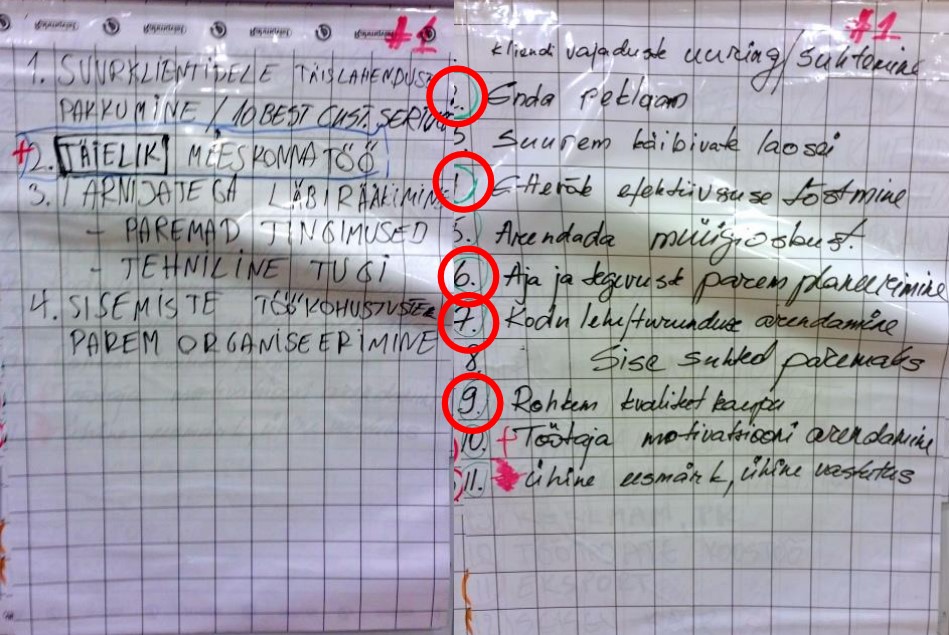 #1
1. SUURKLIENTIDELE TÄISLAHENDUST
PAKKUMINE / 10 BEST CUST. SERVICE
+2. TÄIELIK MEESKONNATÖÖ
3. TARNIJATEGA LÄBIRÄÄKIMINE
- PAREMAD TINGIMUSED
- TEHNILINE TUGI
4. SISEMISTE TÖÖKOHUSTUSTE
PAREM ORGANISEERIMINE
#1
Kliendi vajaduste uuring/suhtumine
2. Enda reklaam
3. Suurem käibivate laosei
Ettevõt efektiivsuse tõstmine
5. Arendada müügioskust.
6. Aja ja tegevuste parem planeerimine
7. Kodulehe/turunduse arendamine
8. Sise suhted paremaks
9. Rohkem kvaliteet kaupa
10. + Töötaja motivatsiooni arendamine
11. Ühine eesmärk, ühine vastutus